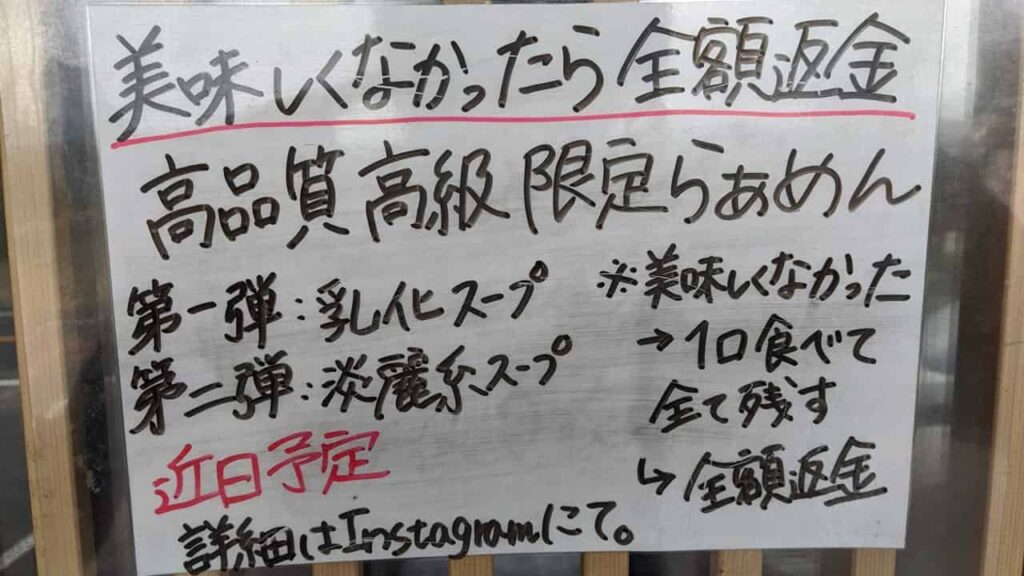 美味しくなかったら全額返金
高品質高級限定らぁめん
第一弾:乳化スープ
第二弾:淡麗系スープ
近日予定
詳細はInstagramにて。
※美味しくなかった
→1口食べて
全て残す
↳全額返金